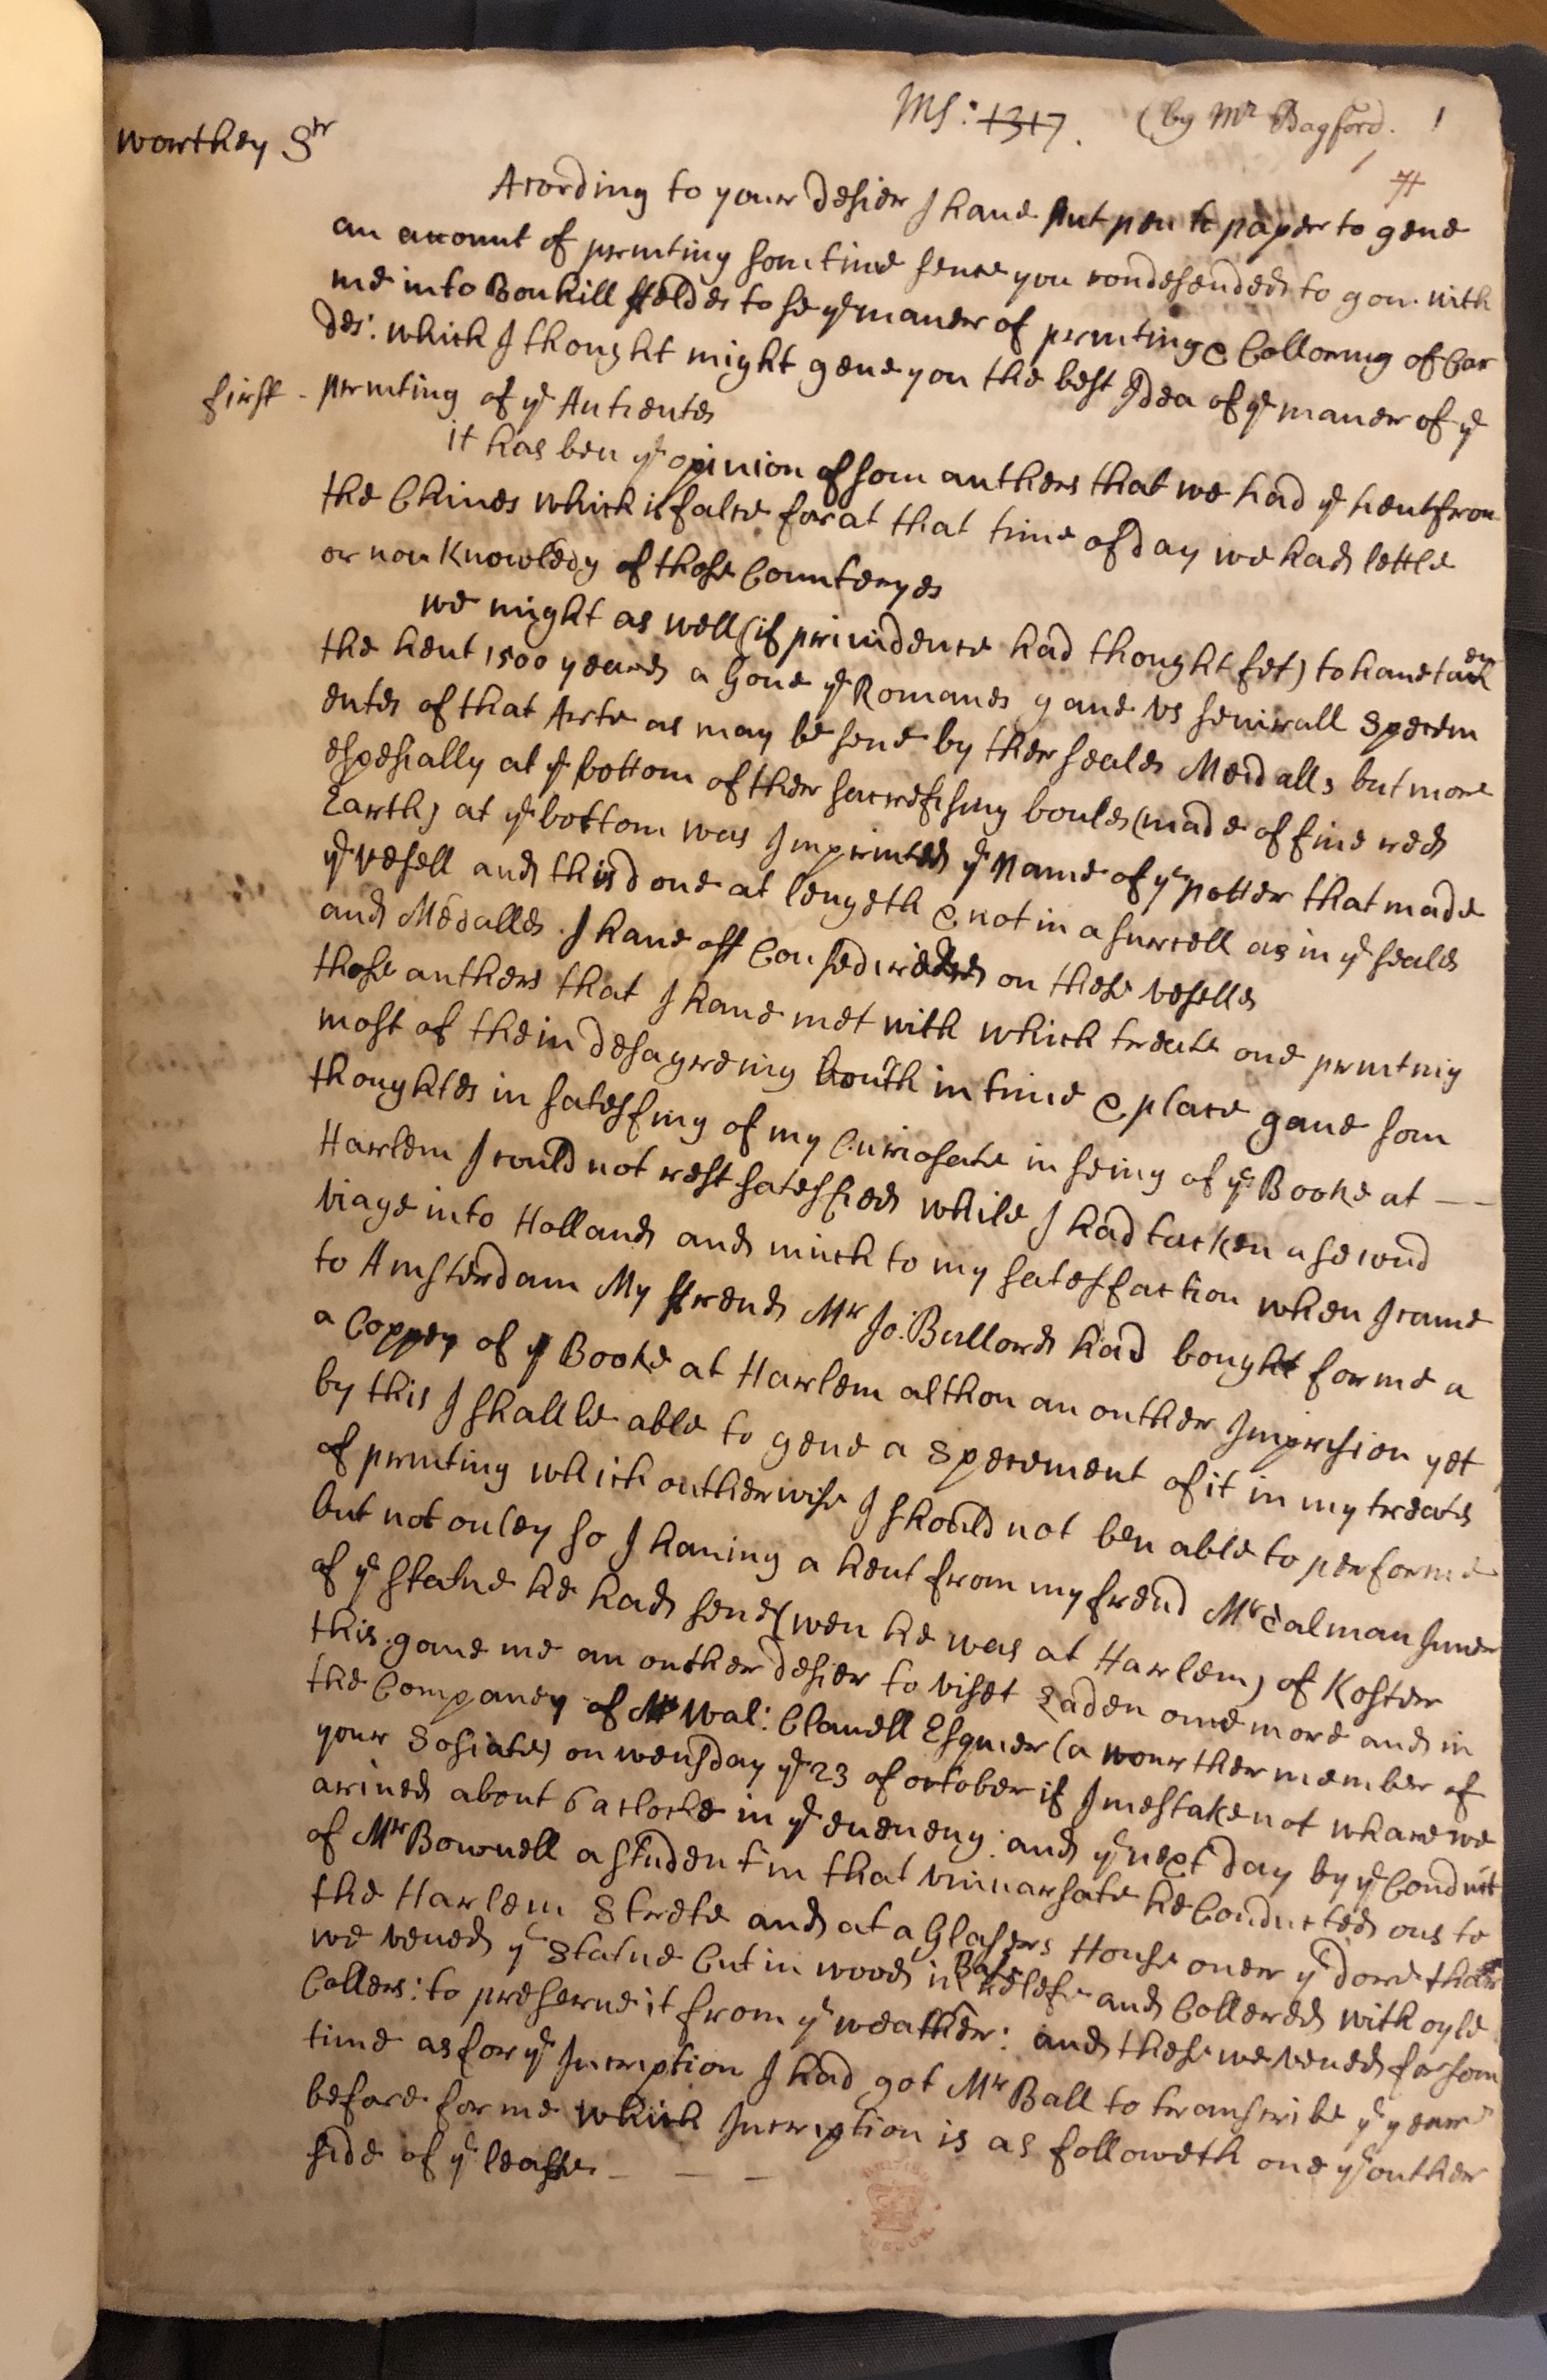 Ms: 1317. (by Mr Bagford. 1
Worthey Sr
Acording to your desier I haue put pen to paper to geue
an acount of prenting somtime sence you condesended to gou with
me into Bonhill ffeldes to se ye maner of prenting & Colloring of Car
des: which I thought might geue you the best Idea of ye maner of ye
first - prenting of ye Antientes
it has ben ye opinion of som authers that we had ye hent from
the Chines which is false for at that time of day we had lettle
or non Knowledg of those Counteryes
we might as well (if prouidence had thought fet) to haue taken
the hent 1500 yeares a Gone ye Romanes gaue vs seuirall Specem
entes of that Arte as may be sene by ther seales Meddalls but more
espesially at ye bottom of ther sacrefising boules (made of fine red
Earth) at ye bottom was Imprinted ye Name of ye potter that made
ye vesell and this done at lengeth & not in a surcell as in ye seales
and Medalles. I haue oft Consedired on these veselles
those authers that I haue met with which treate one prenting
most of them desagreing bouth in time & place gaue som
thoughtes in satesfing of my Curiosate in seing of ye Booke at —
Harlem I could not rest satesfied while I had tacken a second
viage into Holland and much to my satesfaction when I came
to Amsterdam My ffrend Mr Jo: Bullord had bought for me a
a Coppey of ye Booke at Harlem althou an outher Impresion yet
by this I shall be able to geue a Specement of it in my treates
of prenting which outherwise I should not ben able to performe
but not onley so I hauing a hent from my frend Mr Talman Juner
of ye Statue he had sene (wen he was at Harlem) of Koster
this gaue me an outher desier to viset Laden onne more and in
the Companey of Mr Wal: Clauell Esquier (a wourther member of
your Sosiate) on wensday ye 23 of october if I mestake not whare we
ariued about 6 aclocke in ye eueneng: and ye next day by ye Conduit
of Mr Bownell a student in that vniuarsate he Conducted ous to
the Harlem Strete and at a Glasers House ouer ye dore thare
we veued ye Statue Cut in wood in Base Relefe and Collered with oyle
Collers: to preserue it from ye weather: and these we veued for som
time as for ye Inscription I had got Mr Ball to transcribe ye yeare
before for me which Inscription is as followeth one ye outher
side of ye leaffe. — — —